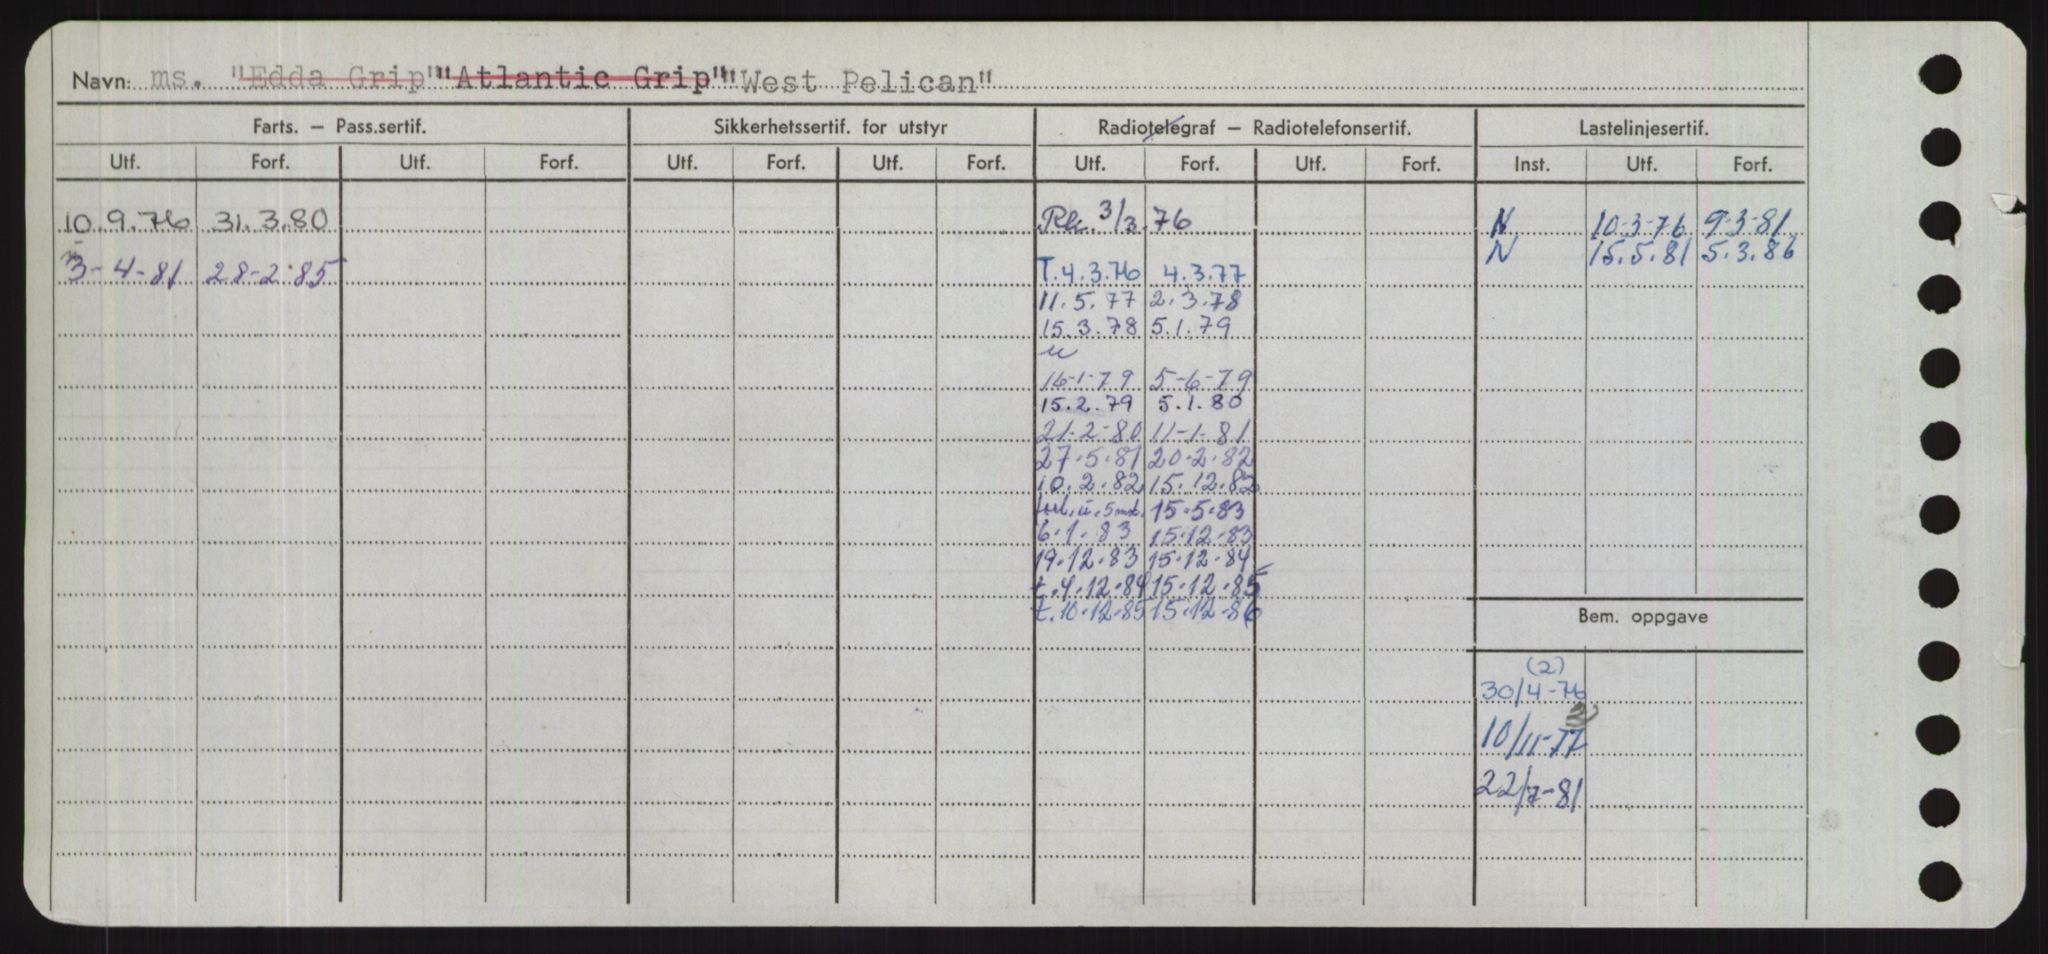 Navn: ms. "Edda Grip" "Atlantic Grip" "West Pelican"
Farts. – Pass.sertif. Sikkerhetssertif. for utstyr Radiotelegraf – Radiotelefonsertif. Lastelinjesertif.
Utf. Forf. Utf. Forf. Utf. Forf. Utf. Forf. Utf. Forf. Utf. Forf. Inst. Utf. Forf.
10.9.76 31.3.80 3/3.76 N 10-3-76 9-3-81
3-4-81 28-2-85 T.4.3.76 4.3.77 N 15.5.81 5.3.86
11.5.77 2.3.78
15.3.78 5.1.79
16-1-79 5-6-79
15.2.79 5.1.80
21-2-80 11-1-81
27.5.81 20.2.82
10.2.82 15.12.82
15.5.83
6.1.83 15.12.83
19.12.83 15.12.84
t.4.12.84 15.12.85
t.10.12.85 15.12.86
Bem. oppgave
(2)
30/4-76
10/11-77
22/7-81